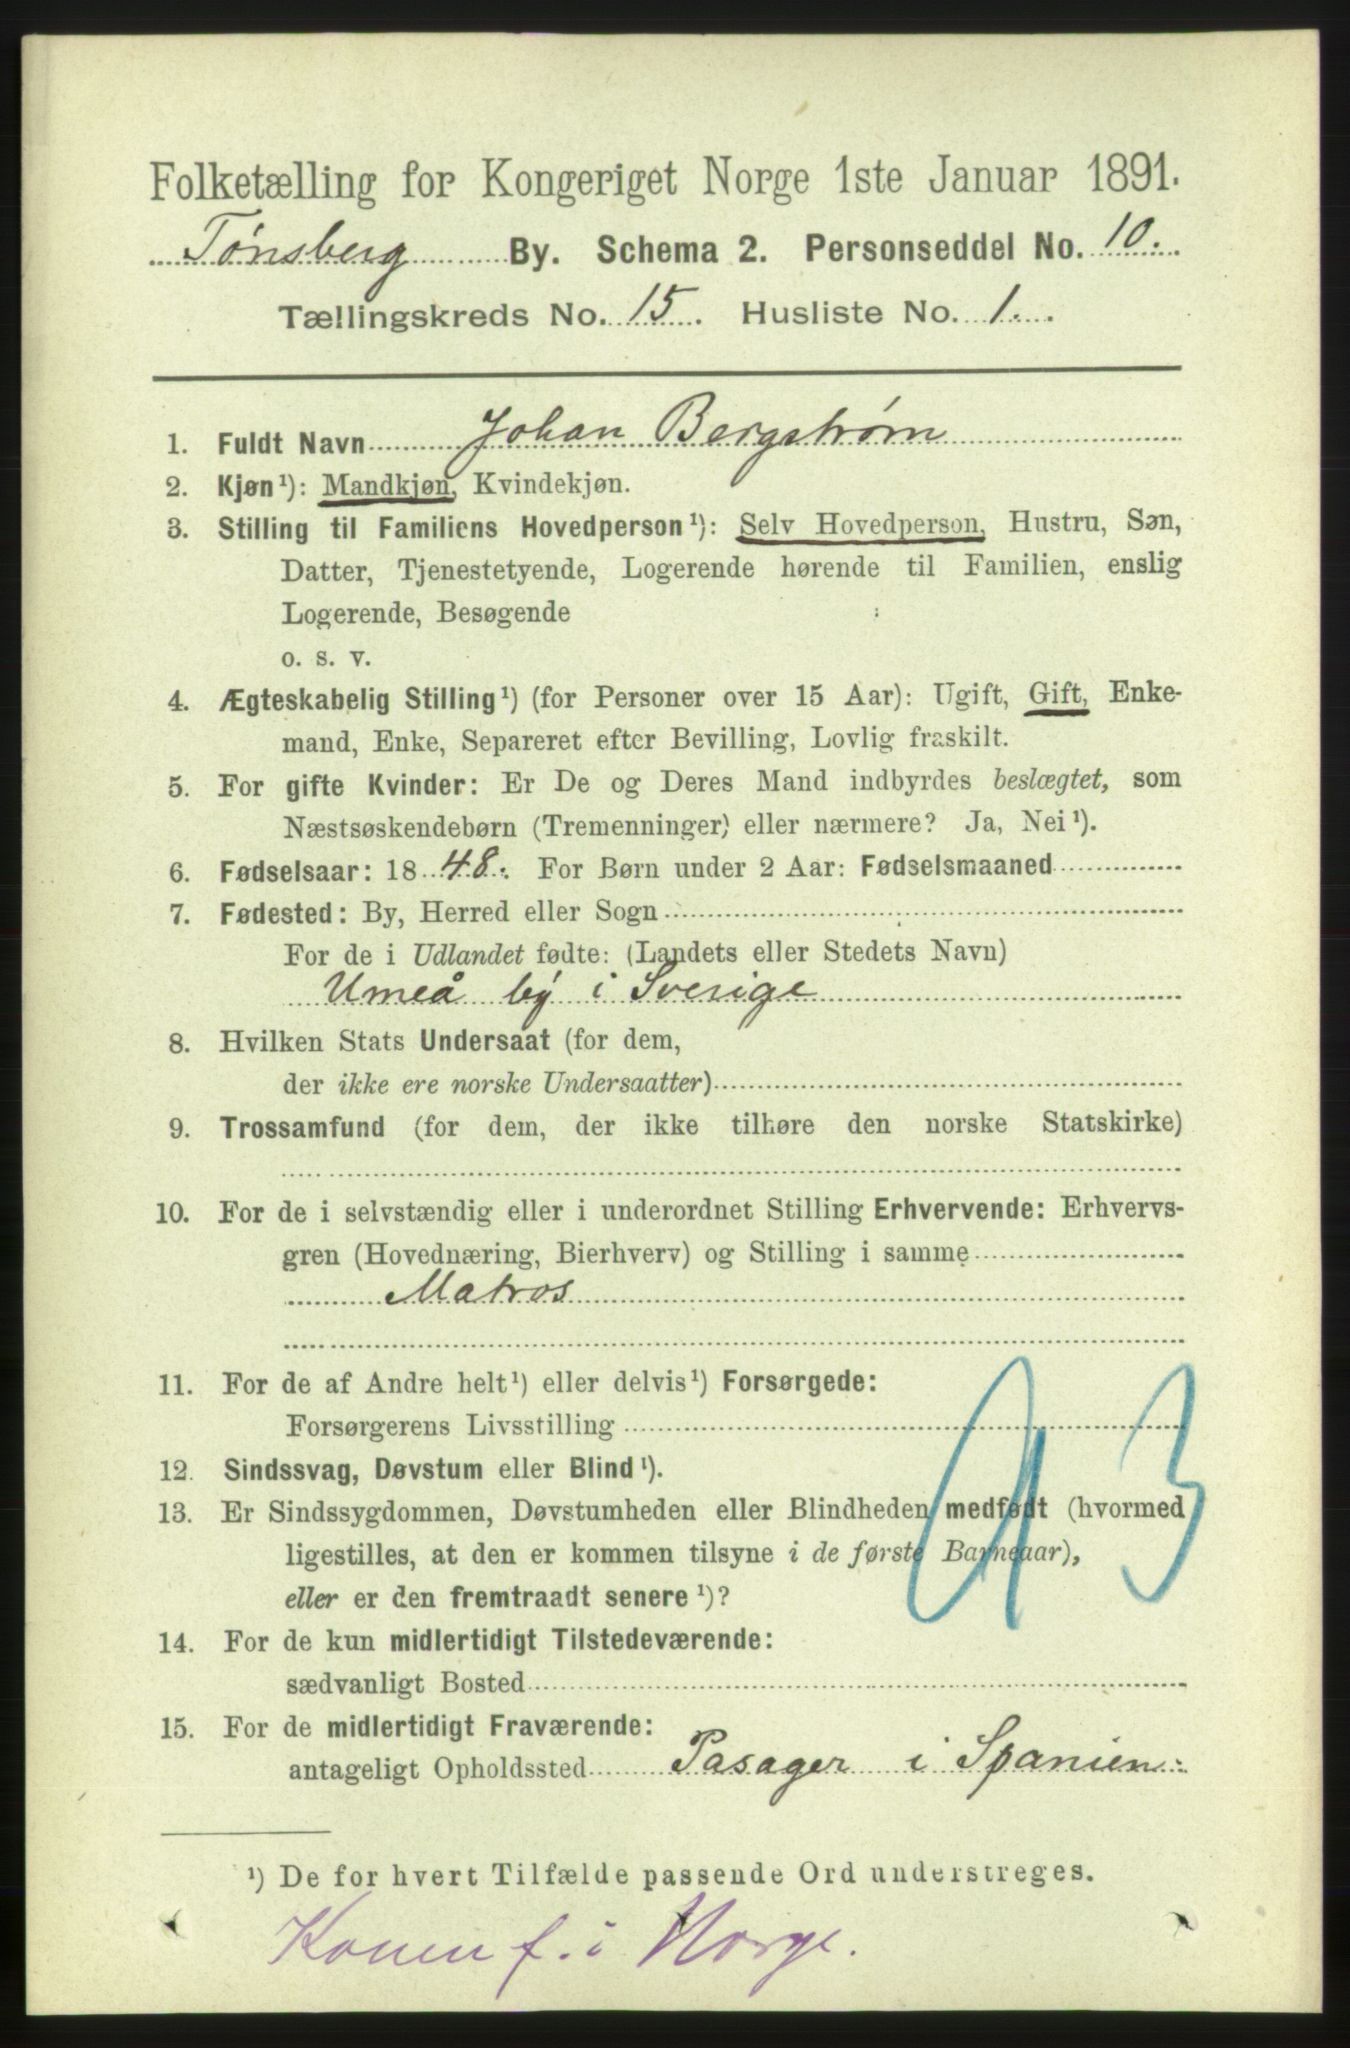 Folketælling for Kongeriget Norge 1ste Januar 1891.
Tønsberg By. Schema 2. Personseddel No. 10.
Tællingskreds No. 15. Husliste No. 1.
1. Fuldt Navn Johan Bergstrøm
2. Kjøn¹): Mandkjøn, Kvindekjøn.
3. Stilling til Familiens Hovedperson¹): Selv Hovedperson, Hustru, Søn,
Datter, Tjenestetyende, Logerende hørende til Familien, enslig
Logerende, Besøgende
o. s. v.
4. Ægteskabelig Stilling¹) (for Personer over 15 Aar): Ugift, Gift, Enke-
mand, Enke, Separeret efter Bevilling, Lovlig fraskilt.
5. For gifte Kvinder: Er De og Deres Mand indbyrdes beslægtet, som
Næstsøskendebørn (Tremenninger) eller nærmere? Ja, Nei¹).
6. Fødselsaar: 1848. For Børn under 2 Aar: Fødselsmaaned
7. Fødested: By, Herred eller Sogn
For de i Udlandet fødte: (Landets eller Stedets Navn)
Umeå by i Sverige
8. Hvilken Stats Undersaat (for dem,
der ikke ere norske Undersaatter)
9. Trossamfund (for dem, der ikke tilhøre den norske Statskirke)
10. For de i selvstændig eller i underordnet Stilling Erhvervende: Erhvervs-
gren (Hovednæring, Bierhverv) og Stilling i samme
Matros
11. For de af Andre helt¹) eller delvis¹) Forsørgede:
Forsørgerens Livsstilling
12. Sindssvag, Døvstum eller Blind¹).
13. Er Sindssygdommen, Døvstumheden eller Blindheden medfødt (hvormed
ligestilles, at den er kommen tilsyne i de første Barneaar),
eller er den fremtraadt senere¹)?
14. For de kun midlertidigt Tilstedeværende:
sædvanligt Bosted
15. For de midlertidigt Fraværende:
antageligt Opholdssted Pasager i Spanien
¹) De for hvert Tilfælde passende Ord understreges.
Konen f. i Norge.